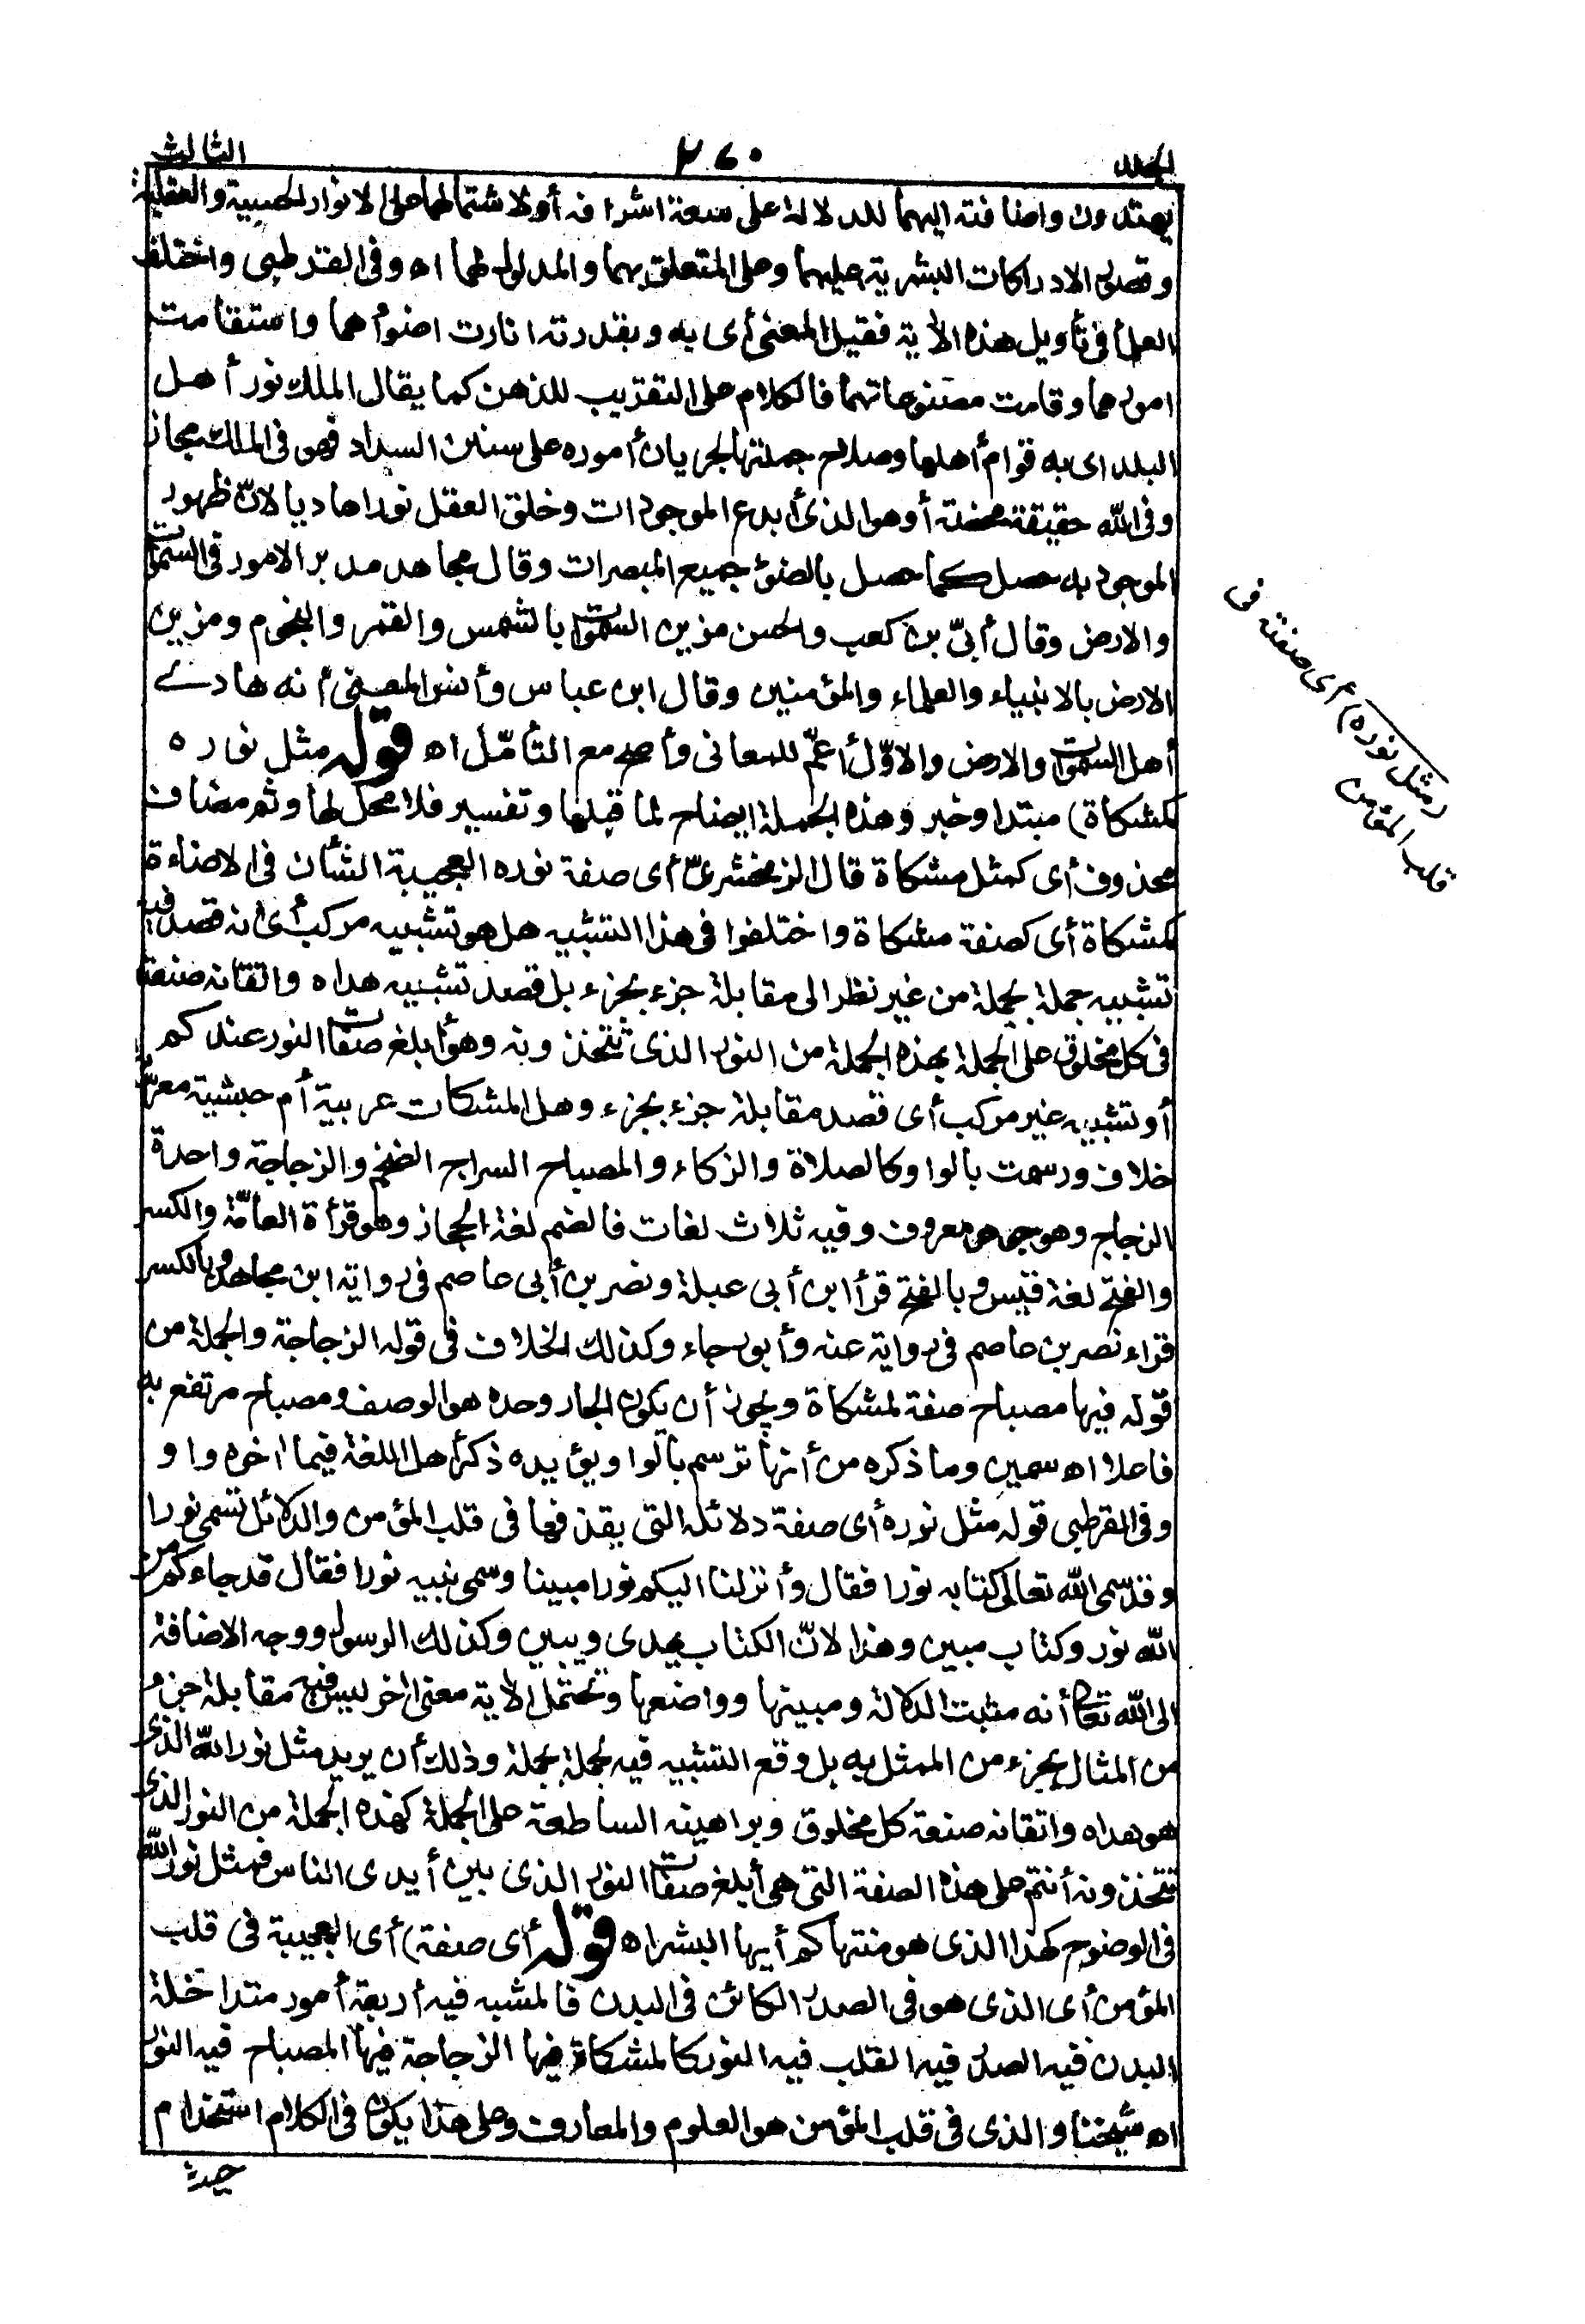 المجلد
٢٦٠
الثالث
يهتدون واضافته اليهما للدلالة على سعة اشراقه أولاشتمالهما على الانوار الحسية والعقلية
وقصور الادراكات البشرية عليهما وعلى المتعلق بهما والمدلول لهما اه وفى القرطبى واختلف
العلمأ فى تأويل هذه الأية فقيل المعنى أى به وبقدرته انارت اضوأهما واستقامت
امورهما وقامت مصنوعاتهما فالكلام على التقريب للذهن كما يقال الملك نور أهل
البلد اى به قوام أهلها وصلاح جملتها لجريان أموره على سنن السداد فهو فى الملك مجاز
وفى الله حقيقة محضة أوهو الذى أبدع الموجودات وخلق العقل نورا هاديا لانّ ظهور
الموجود به حصل كما حصل بالضوٴ جميع المبصرات وقال مجاهد مدبر الامور فى السموات
والارض وقال أبىّ بن كعب والحسن مزين السموات بالشمس والقمر والنجوم ومزين
الارض بالانبياء والعلماء والمؤمنين وقال ابن عباس وأنس المعنى أنه هادے
أهل السموات والارض والاوّل أعمّ للمعانى وأصح مع التأمّل اه قوله مثل نوره
كمشكاة) مبتدا وخبر وهذه الجملة ايضاح لما قبلها وتفسير فلا محل لها وثم مضاف
محذوف أى كمثل مشكاة قال الزمخشرىّ أى صفة نوره العجيبة الشأن فى الاضاءة
كمشكاة أى كصفة مشكاة واختلفوا فى هذا التشبيه هل هو تشبيه مركب أى انه قصد فيه
تشبيه جملة بجملة من غير نظر الى مقابلة جزء بجزء بل قصد تشبيه هداه واتقانه صنعته
فى كل مخلوق على الجملة بهذه الجملة من النور الذى تتخذونه وهو أبلغ صفات النور عندكم
أو تشبيه غير مركب أى قصد مقابلة جزء بجزء وهل المشكات عربية أم حبشية معرّبة
خلاف ورسمت بالواو كالصلاة والزكاء والمصباح السراج الضخم والزجاجة واحدة
الزجاج وهو جوهر معروف وفيه ثلاث لغات فالضم لغة الحجاز وهو قرأة العامّة والكسر
والفتح لغة قيس وبالفتح قرأ ابن أبى عبلة ونصر بن أبى عاصم فى رواية ابن مجاهد وبالكسر
قراء نصر بن عاصم فى رواية عنه وأبو رجاء وكذلك الخلاف فى قوله الزجاجة والجملة من
قوله فيها مصباح صفة لمشكاة ويجوز أن يكون الجار وحده هو الوصف ومصباح مرتفع به
فاعلا اه سمين وما ذكره من أنها ترسم بالواو يؤيده ذكر أهل اللغة فيما اخره واو
وفى القرطبى قوله مثل نوره أى صفة دلائله التى يقذفها فى قلب المؤمن والدلائل تسمى نورا
وقد سمى الله تعالى كتابه نورا فقال وأنزلنا اليكم نورا مبينا وسمى نبيه نورا فقال قد جاءكم من
الله نور وكتاب مبين وهذا لانّ الكتاب يهدى ويبين وكذلك الرسول ووجه الاضافة
الى الله تعالى أنه مثبت الدلالة ومبينها وواضعها وتحتمل الأية معنى اخر ليس فيه مقابلة جزء
من المثال بجزء من الممثل به بل وقع التشبيه فيه بجملة بجملة وذلك أن يريد مثل نور الله الذى
هو هداه واتقانه صنعة كل مخلوق وبراهينه الساطعة على الجملة كهذه الجملة من النور الذى
تتخذونه أنتم على هذه الصفة التى هى أبلغ صفات النور الذى بين أيدى الناس فمثل نور الله
فى الوضوح كهذا الذى هو منتهاكم أيها البشر اه قوله أى صفة) أى العجيبة فى قلب
المؤمن أى الذى هو فى الصدر الكائن فى البدن فالمشبه فيه أربعة أمور متداخلة
البدن فيه الصدر فيه القلب فيه النور كالمشكاة فيها الزجاجة فيها المصباح فيه النور
اه شيخنا والذى فى قلب المؤمن هو العلوم والمعارف وعلى هذا يكون فى الكلام استخدام
حيث
(مثل نوره) أى صفته فى
قلب المؤمن